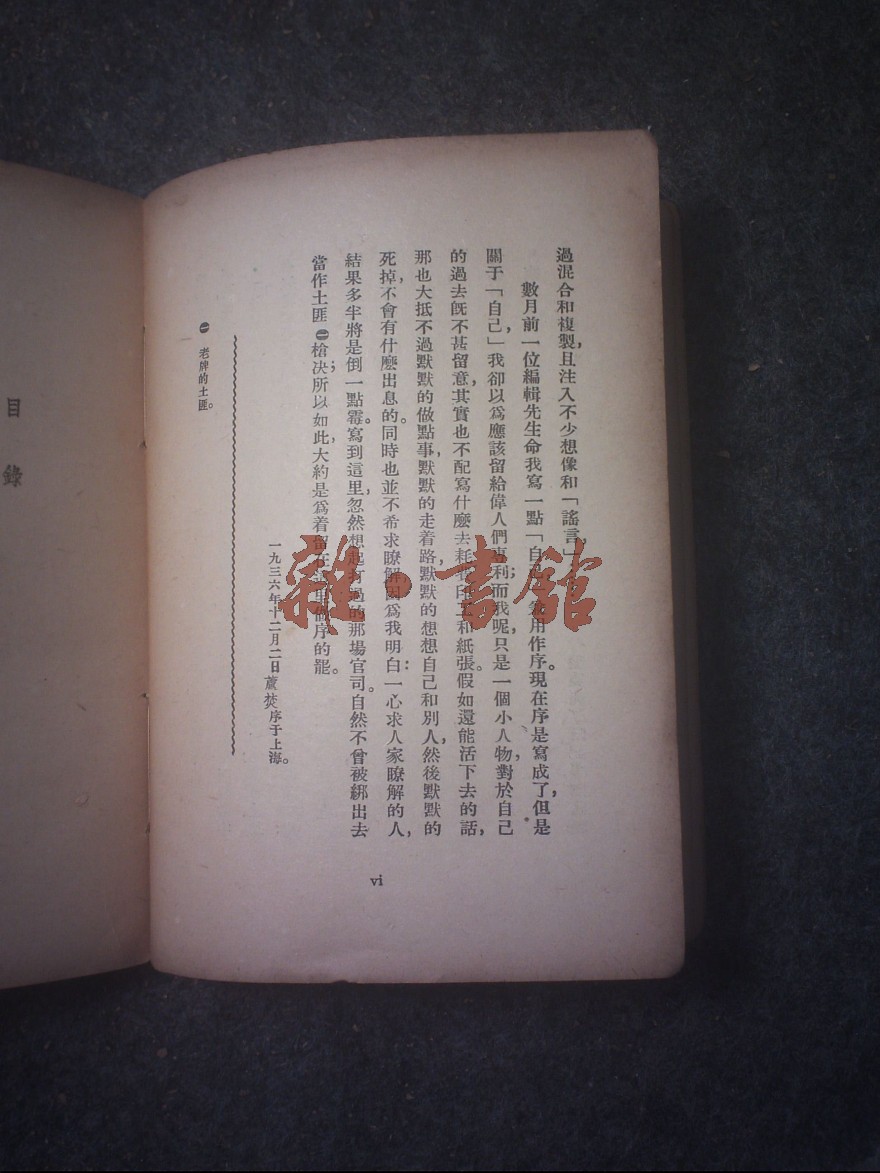 過混合和複製，且注入不少想像和「謠言」
數月前一位編輯先生命我寫一點「自己」 用作序。現在序是寫成了，但是
關于「自己，」我卻以爲應該留給偉人們專利；而我呢，只是一個小人物，對於自己
的過去旣不甚留意，其實也不配寫什麽去耗 印工和紙張。假如還能活下去的話，
那也大抵不過默默的做點事，默默的走着路，默默的想想自己和別人，然後默默的
死掉，不會有什麽出息的。同時也並不希求瞭解，因爲我明白：一心求人家瞭解的人，
結果多半將是倒一點霉。寫到這里，忽然想起打過的那場官司。自然不曾被綁出去
當作土匪㊀槍决；所以如此，大約是爲着留在這里做序的罷。
一九三六年十二月二日蘆焚序于上海。
㊀ 老牌的土匪。
vi
目錄
雜·書館